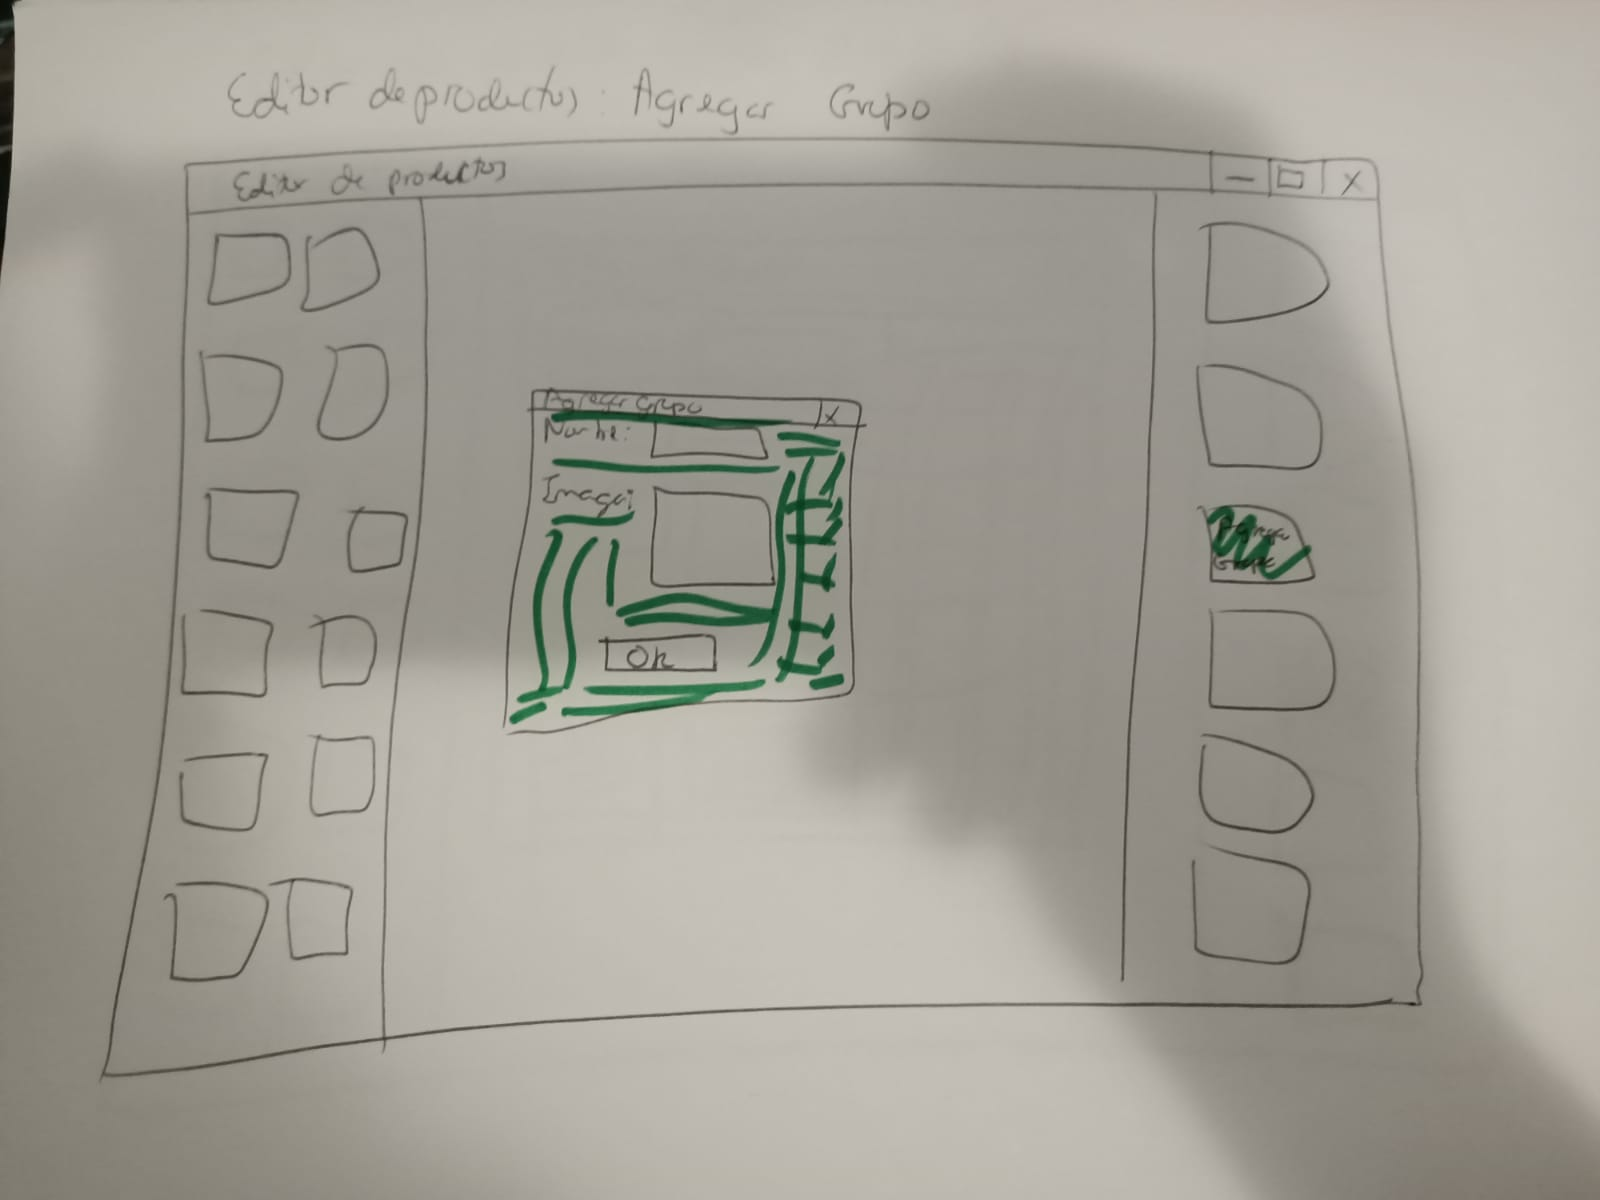 Editor de productos: Agregar Grupo
Editor de productos
X
Agregar Grupo
X
Nombre:
Imagen:
Agregar
Grupo
OK